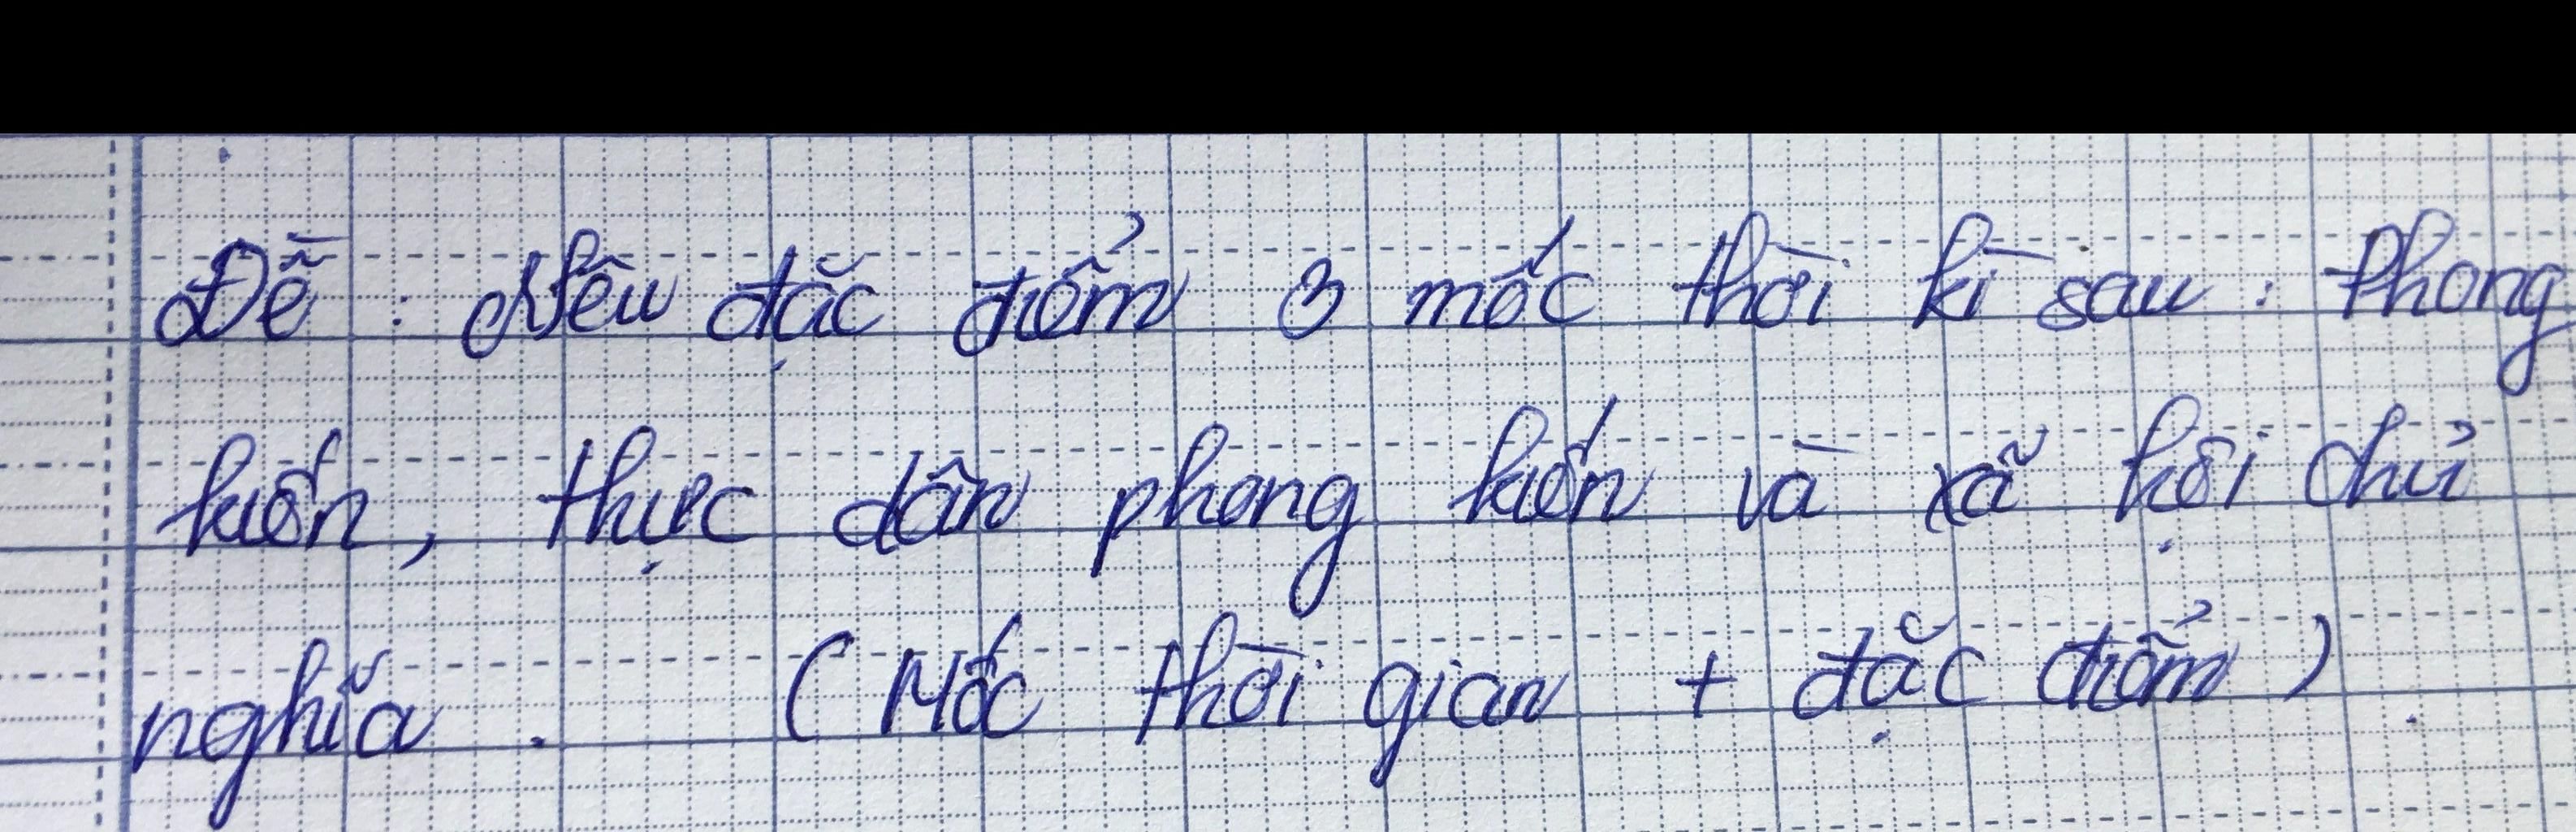 Đề : Nêu đặc điểm 3 mốc thời kì sau : Phong
kiến, thực dân phong kiến và xã hội chủ
nghĩa . ( Mốc thời gian + đặc điểm )